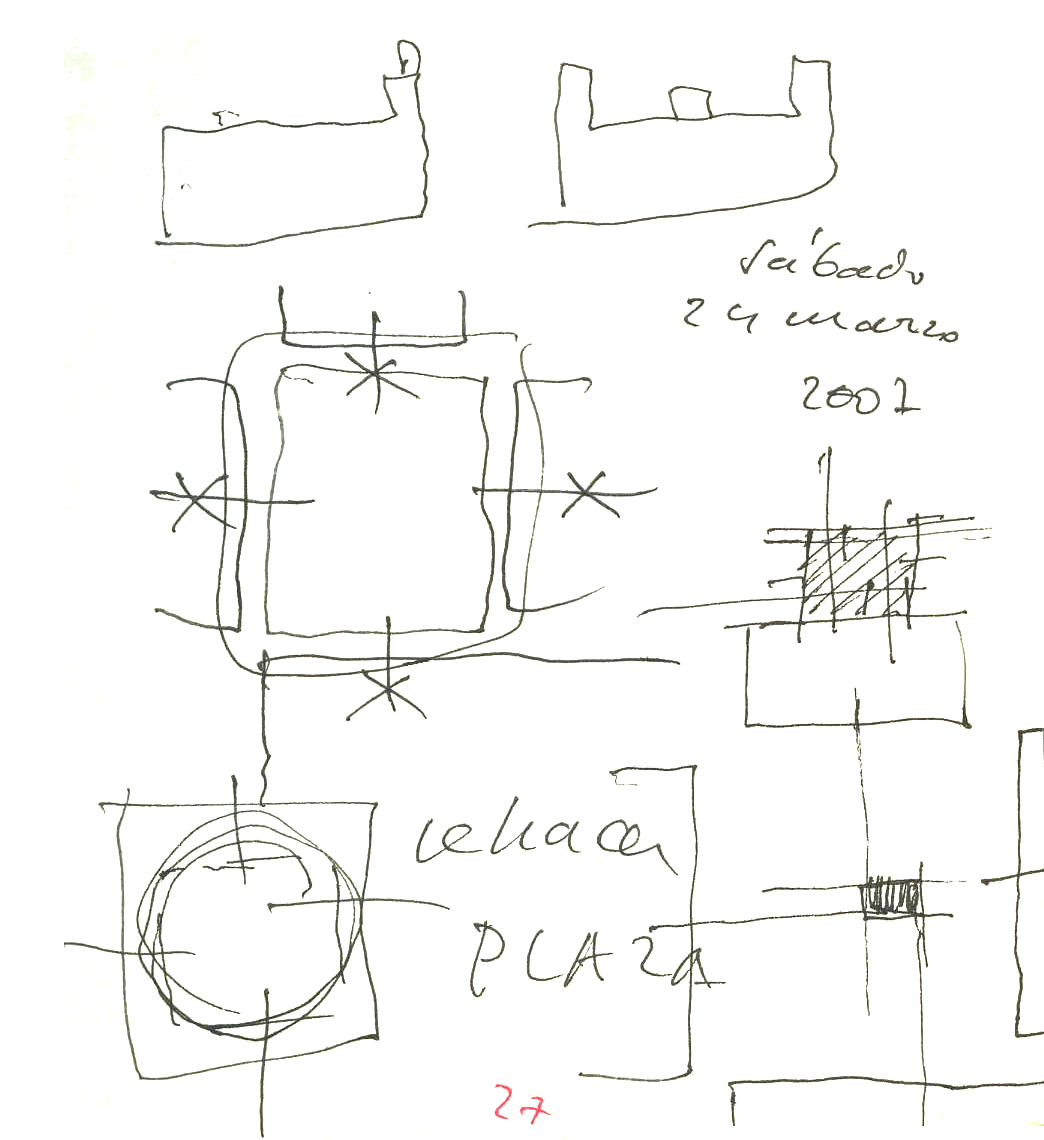 sábado
24 marzo
2007
rehacer
PLAZA
27